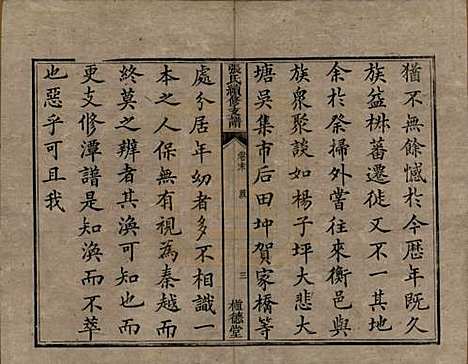 猶不無餘憾於今歷年既久
族益椕蕃遷徙又不一其地
余於祭掃外嘗往來衡邑與
族衆聚談如楊子坪大悲大
塘吳集市后田坤賀家橋等
張氏續修支譜
卷末
三
植德堂
處分居年幼者多不相識一
本之人保無有視為秦越而
終莫之辨者其渙可知矣若
更支修潭譜是知渙而不萃
也惡乎可且我